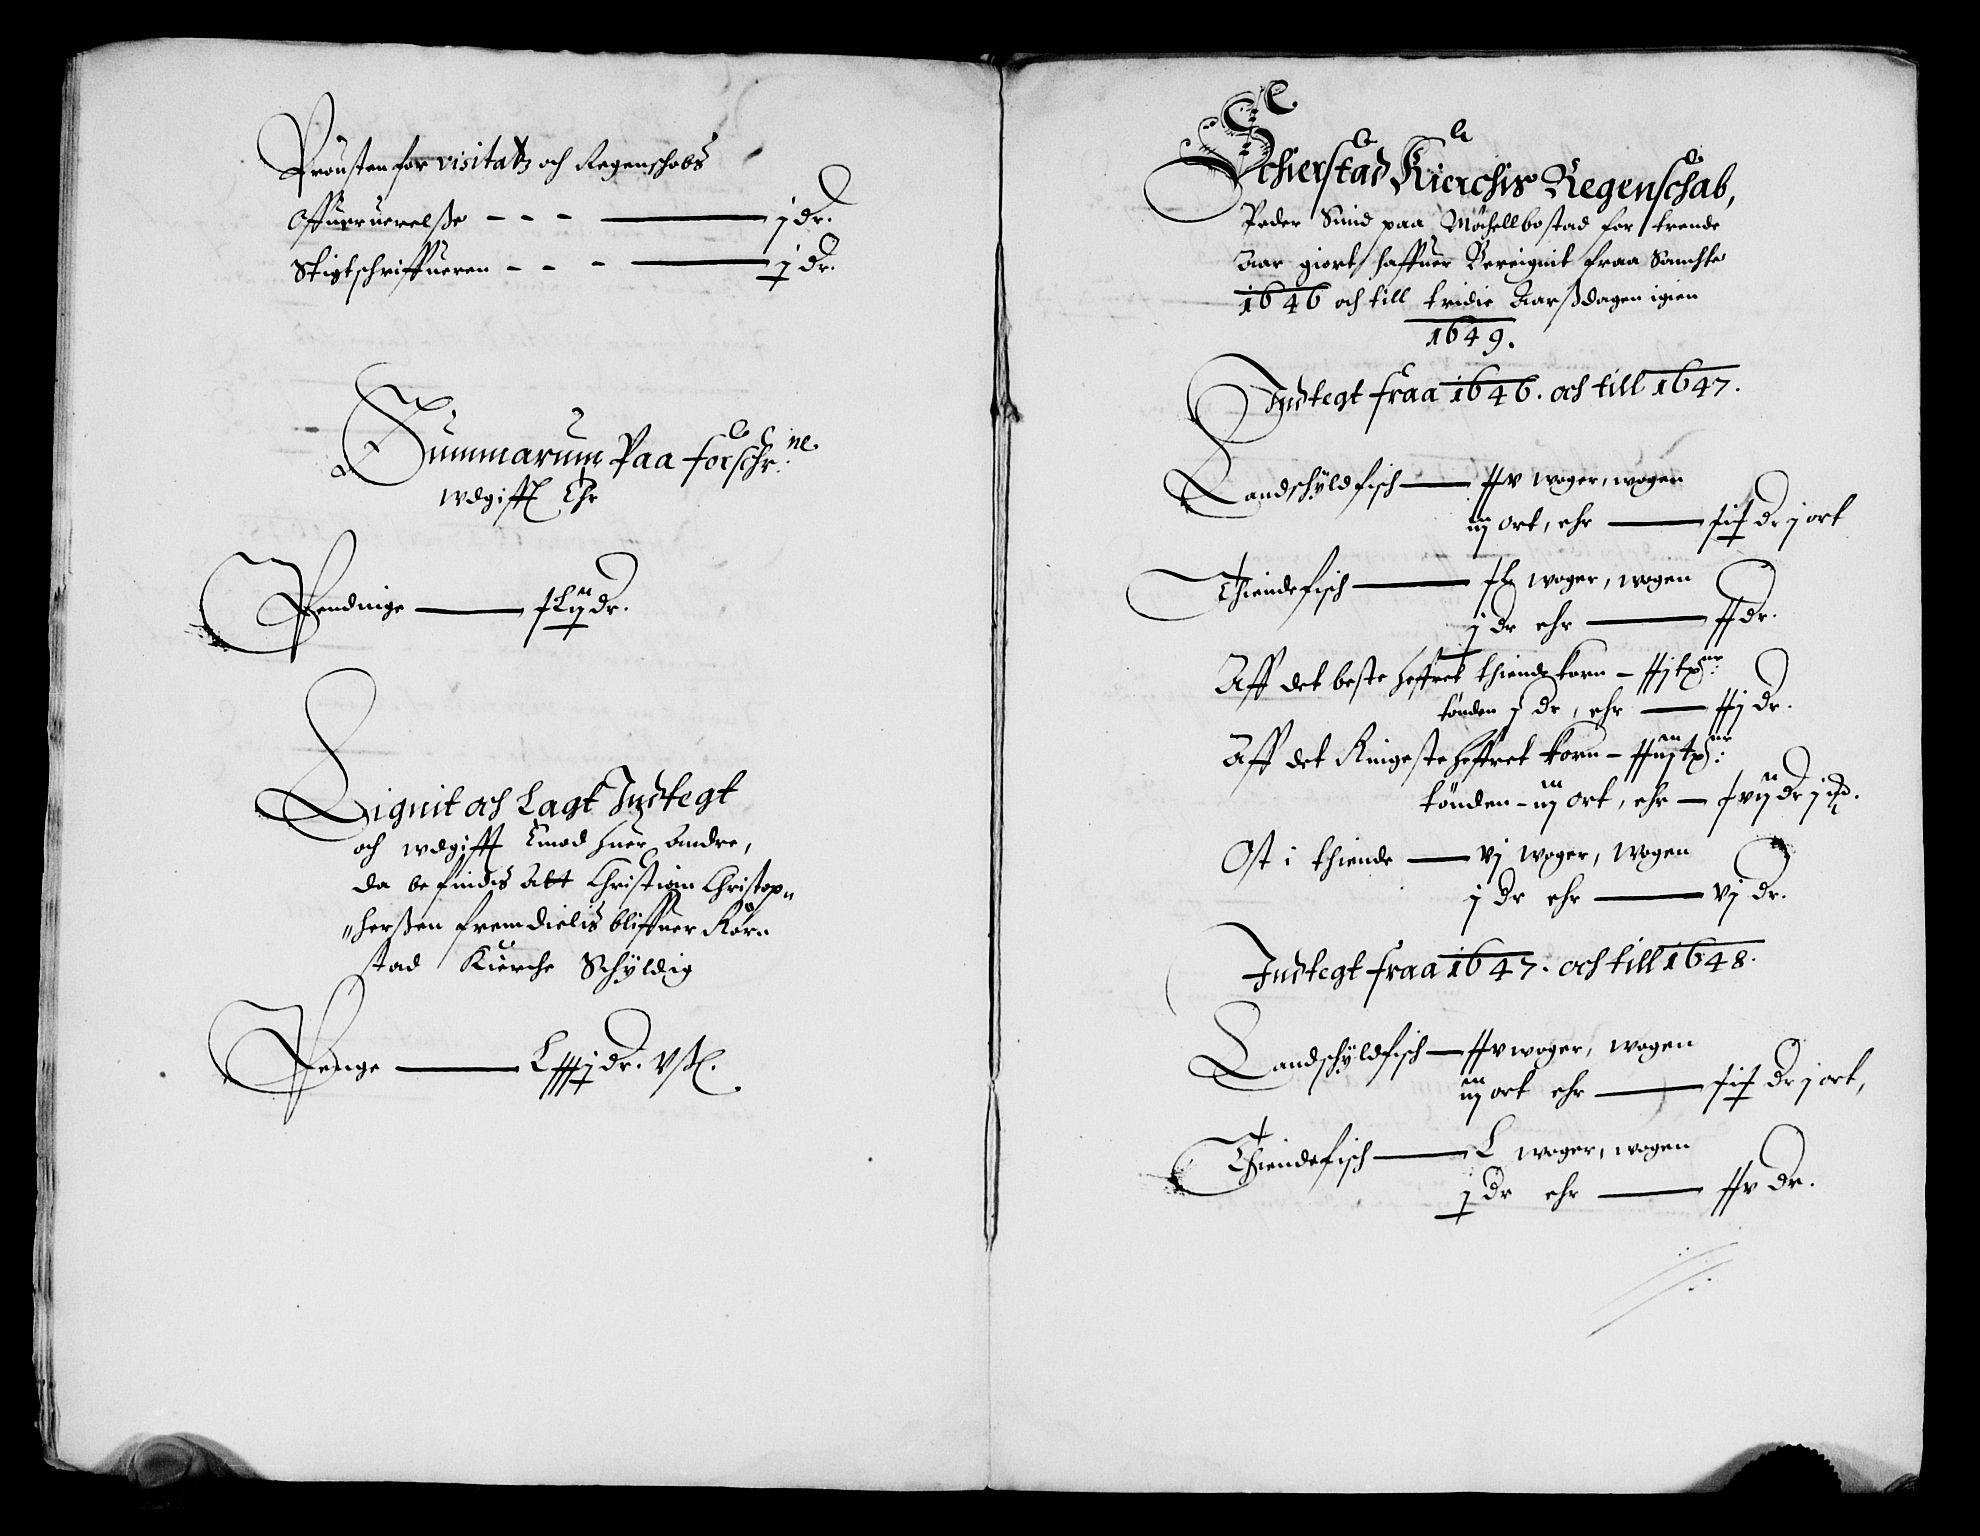 Prousten for visitatz och Regenschabs
Offueruerelße - - - j dr.
Stigtschriffueren - - - j dr.
Summarum Paa forschr: ne
wdgifft Ehr
Pendinge dr.
Lignit och Lagt Indtegt
och wdgifft Emod huer Andre,
da befindis Att Christian Christop„
„herßen fremdielis bliffuer Kør„
stad Kiercke Schÿldig
Penge dr.
Schierstad Kierchis Regenschab,
Peder Suud paa Møchellbostad for trende
Aar giort haffuer Bereignit fraa
1646 och till tridie Aarßdagen igien
1649.
Indtegt fraa 1646. och till 1647.
Landschÿldfisch xxv woger, wogen
iij ort, ehr dr j ort
Thiendefisch woger, wogen
j dr ehr dr.
Aff det beste heffret thiende korn - xxj
tønden j dr, ehr xxj dr.
Aff det Ringeste heffret korn -
tønden - iij ort, ehr - xvij dr j
Ost i thiende vj woger, wogen
j dr ehr vj dr.
Indtegt fraa 1647. och till 1648.
Landschÿldfisch xxv woger, wogen
iij ort ehr dr j ort,
Thiendefisch L woger, wogen
j dr ehr dr.